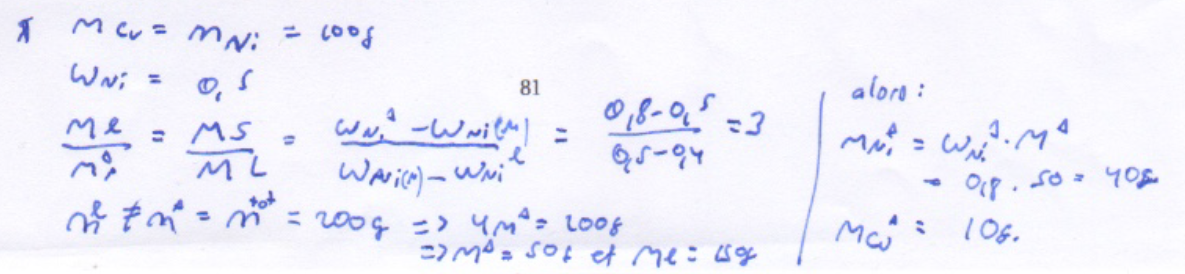 m Cu = m Ni = 100g
ω Ni = 0,5
81
m^ℓ / m^s = MS / ML = (ω Ni^s - ω Ni(M)) / (ω Ni(M) - ω Ni^ℓ) = (0,8-0,5) / (0,5-0,4) = 3
m^ℓ + m^s = m^tot = 200g => 4m^s = 200g
=> m^s = 50g et mℓ = 150g
alors :
m Ni^s = ω Ni^s · m^s
= 0,8 . 50 = 40g
m Cu^s = 10g.